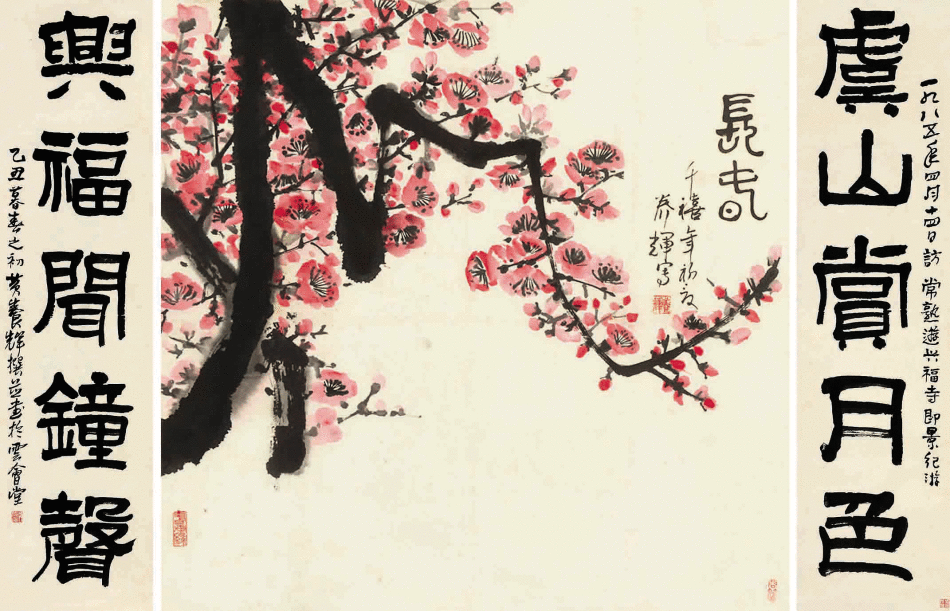 一九八五年四月十四日訪常熟遊兴福寺即景纪游
虞山賞月色
長春
千禧年初夏
养輝寫
興福聞鐘聲
乙丑暮春之初黄養輝撰並書於雲會堂